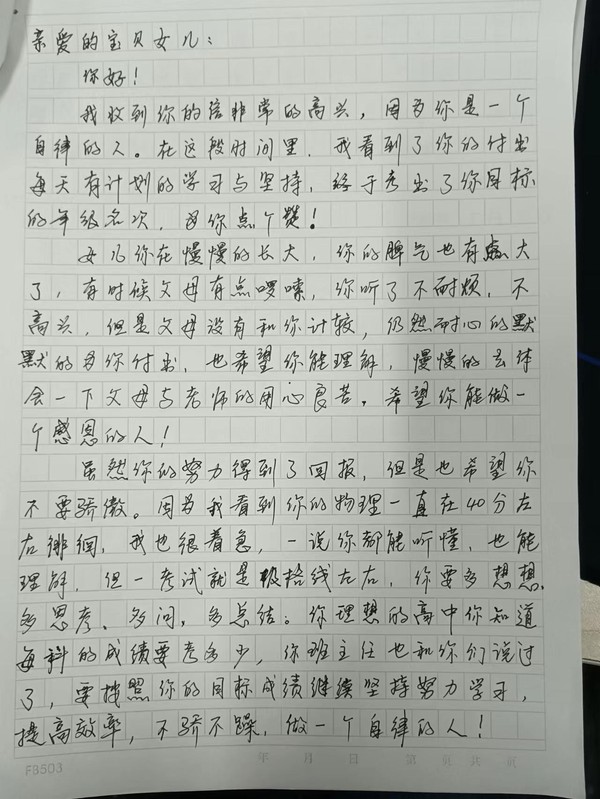 亲爱的宝贝女儿：
你好！
我收到你的信非常的高兴，因为你是一个
自律的人。在这段时间里，我看到了你的付出
每天有计划的学习与坚持，终于考出了你目标
的年级名次，为你点个赞！
女儿你在慢慢的长大，你的脾气也有点大
了，有时候父母有点啰嗦，你听了不耐烦，不
高兴，但是父母没有和你计较，仍然耐心的默
默的为你付出，也希望你能理解，慢慢的去体
会一下父母与老师的用心良苦。希望你能做一
个感恩的人！
虽然你的努力得到了回报，但是也希望你
不要骄傲。因为我看到你的物理一直在40分左
右徘徊，我也很着急，一说你都能听懂，也能
理解，但一考试就是极格线左右，你要多想想
多思考、多问，多总结。你理想的高中你知道
每科的成绩要考多少，你班主任也和你们说过
了，要按照你的目标成绩继续坚持努力学习，
提高效率，不骄不躁，做一个自律的人！
FB503 年 月 日 第 页 共 页